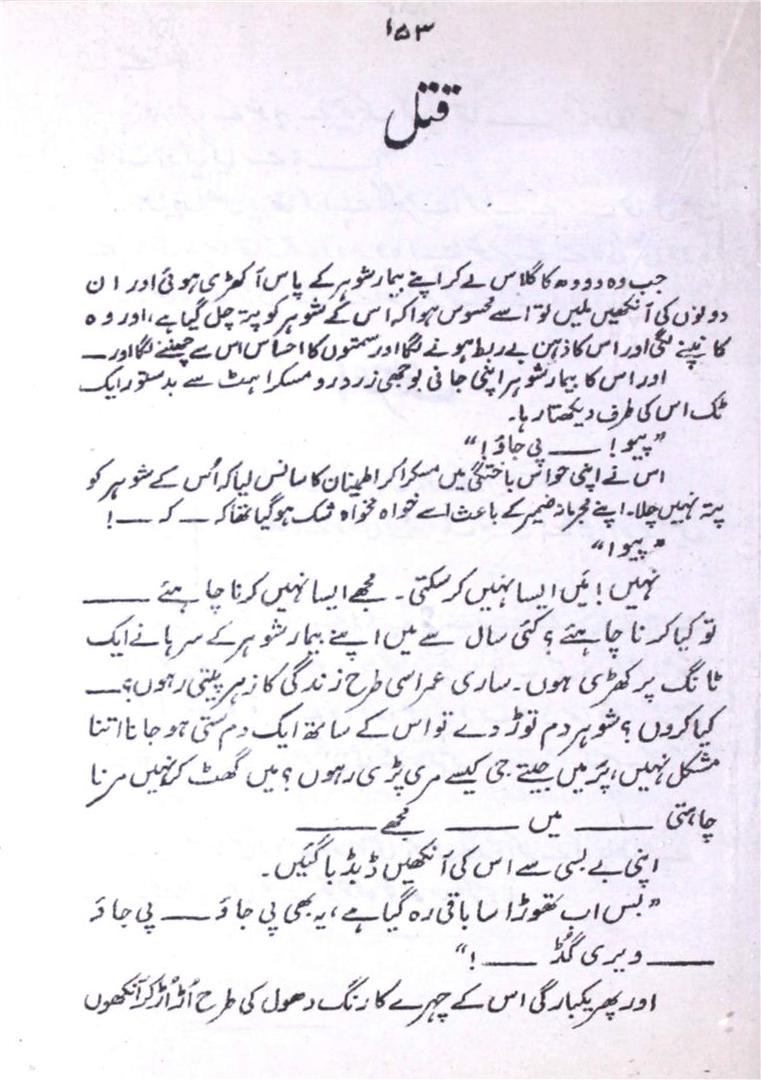 ۱۵۳
قتل
جب وہ دودھ کا گلاس لے کر اپنے بیمار شوہر کے پاس آ کھڑی ہوئی اور ان
دونوں کی آنکھیں ملیں تو اسے محسوس ہوا کہ اس کے شوہر کو پتہ چل گیا ہے، اور وہ
کانپنے لگی اور اس کا ذہن بے ربط ہونے لگا اور سمتوں کا احساس اس سے چھننے لگا اور —
اور اس کا بیمار شوہر اپنی جانی بوجھی زرد رو مسکراہٹ سے بدستور ایک
ٹک اس کی طرف دیکھتا رہا۔
”پیو! —— پی جاؤ!“
اس نے اپنی حواس باختگی میں مسکرا کر اطمینان کا سانس لیا کہ اُس کے شوہر کو
پتہ نہیں چلا۔ اپنے مجرمانہ ضمیر کے باعث اسے خواہ مخواہ شک ہو گیا تھا کہ — کہ —!
”پیو!“
نہیں! میں ایسا نہیں کر سکتی۔ مجھے ایسا نہیں کرنا چاہئے ———
تو کیا کرنا چاہئے؟ کئی سال سے میں اپنے بیمار شوہر کے سرہانے ایک
ٹانگ پر کھڑی ہوں۔ ساری عمر اسی طرح زندگی کا زہر پیتی رہوں؟ —
کیا کروں؟ شوہر دم توڑ دے تو اس کے ساتھ ایک دم ستی ہو جانا اتنا
مشکل نہیں، پَر میں جیتے جی کیسے مری پڑی رہوں؟ میں گھٹ کر نہیں مرنا
چاہتی ——— میں ——— مجھے ———
اپنی بے بسی سے اس کی آنکھیں ڈبڈبا گئیں۔
”بس اب تھوڑا سا باقی رہ گیا ہے، یہ بھی پی جاؤ —— پی جاؤ
——— ویری گُڈ ——!“
اور پھر یکبارگی اس کے چہرے کا رنگ دھول کی طرح اُڑ اُڑ کر آنکھوں